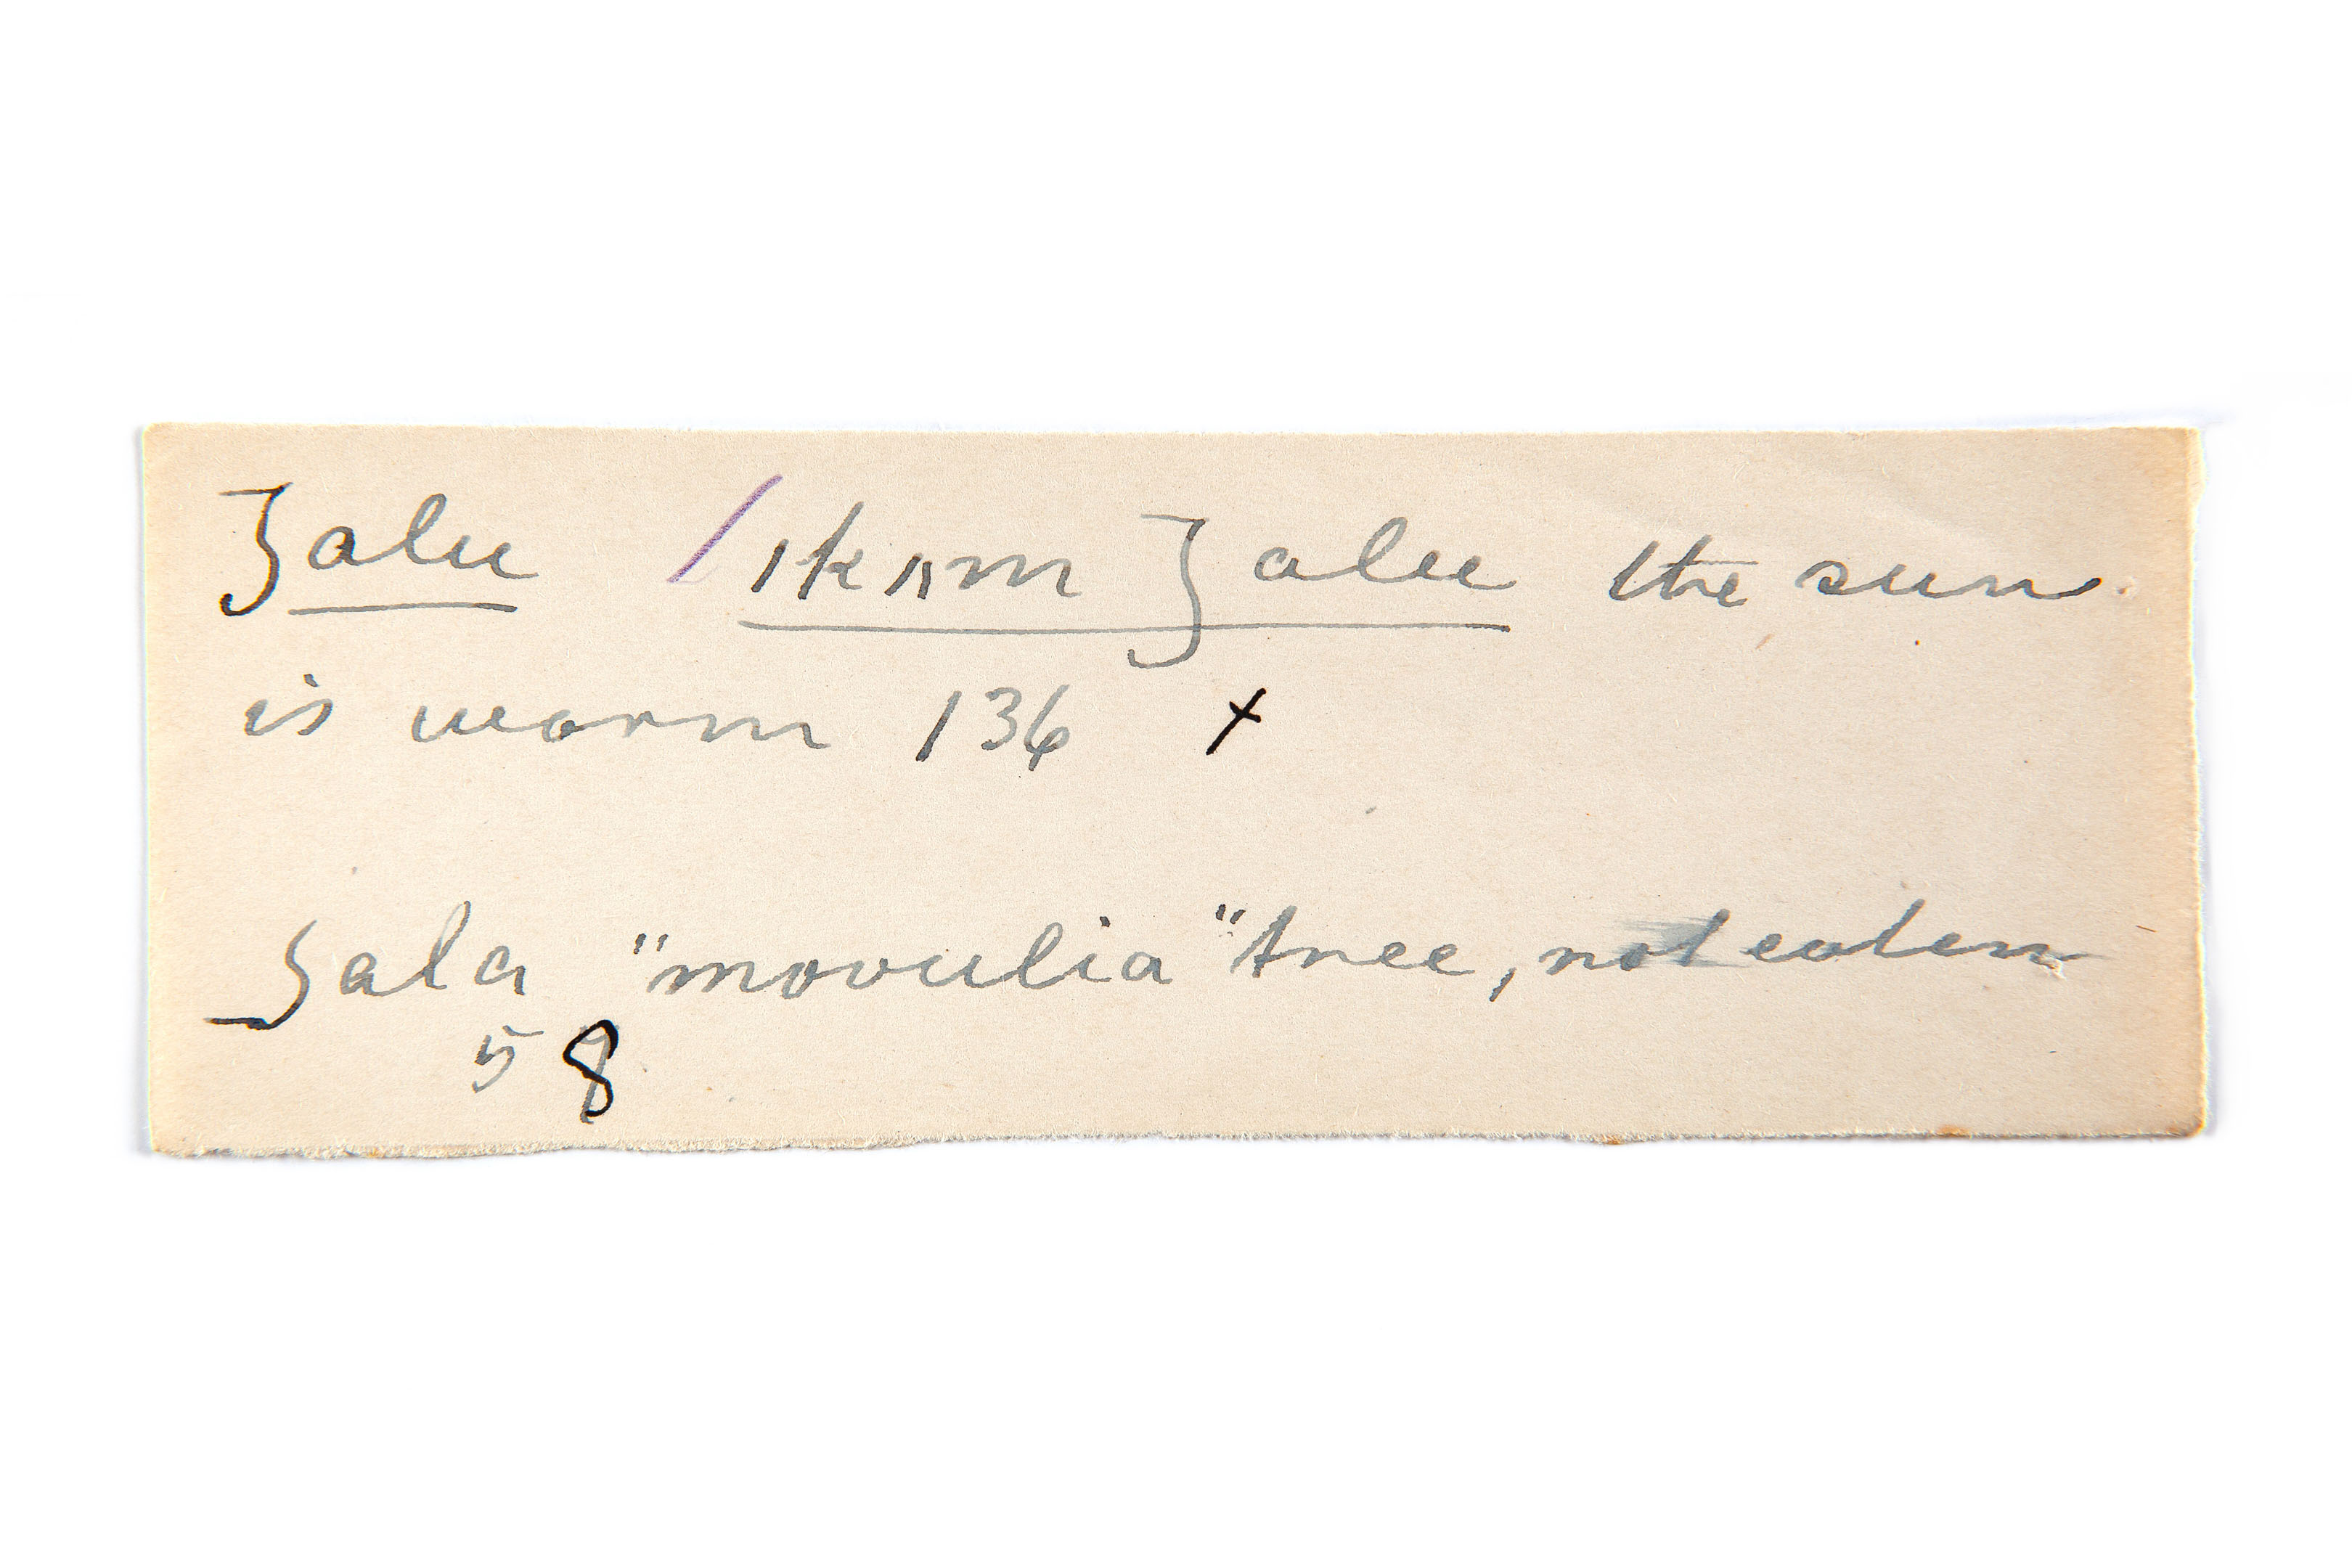 ʒalu /ıkʌm ʒalu the sun
is warm 136 +
ʒala "movulia" tree, not eaten
58